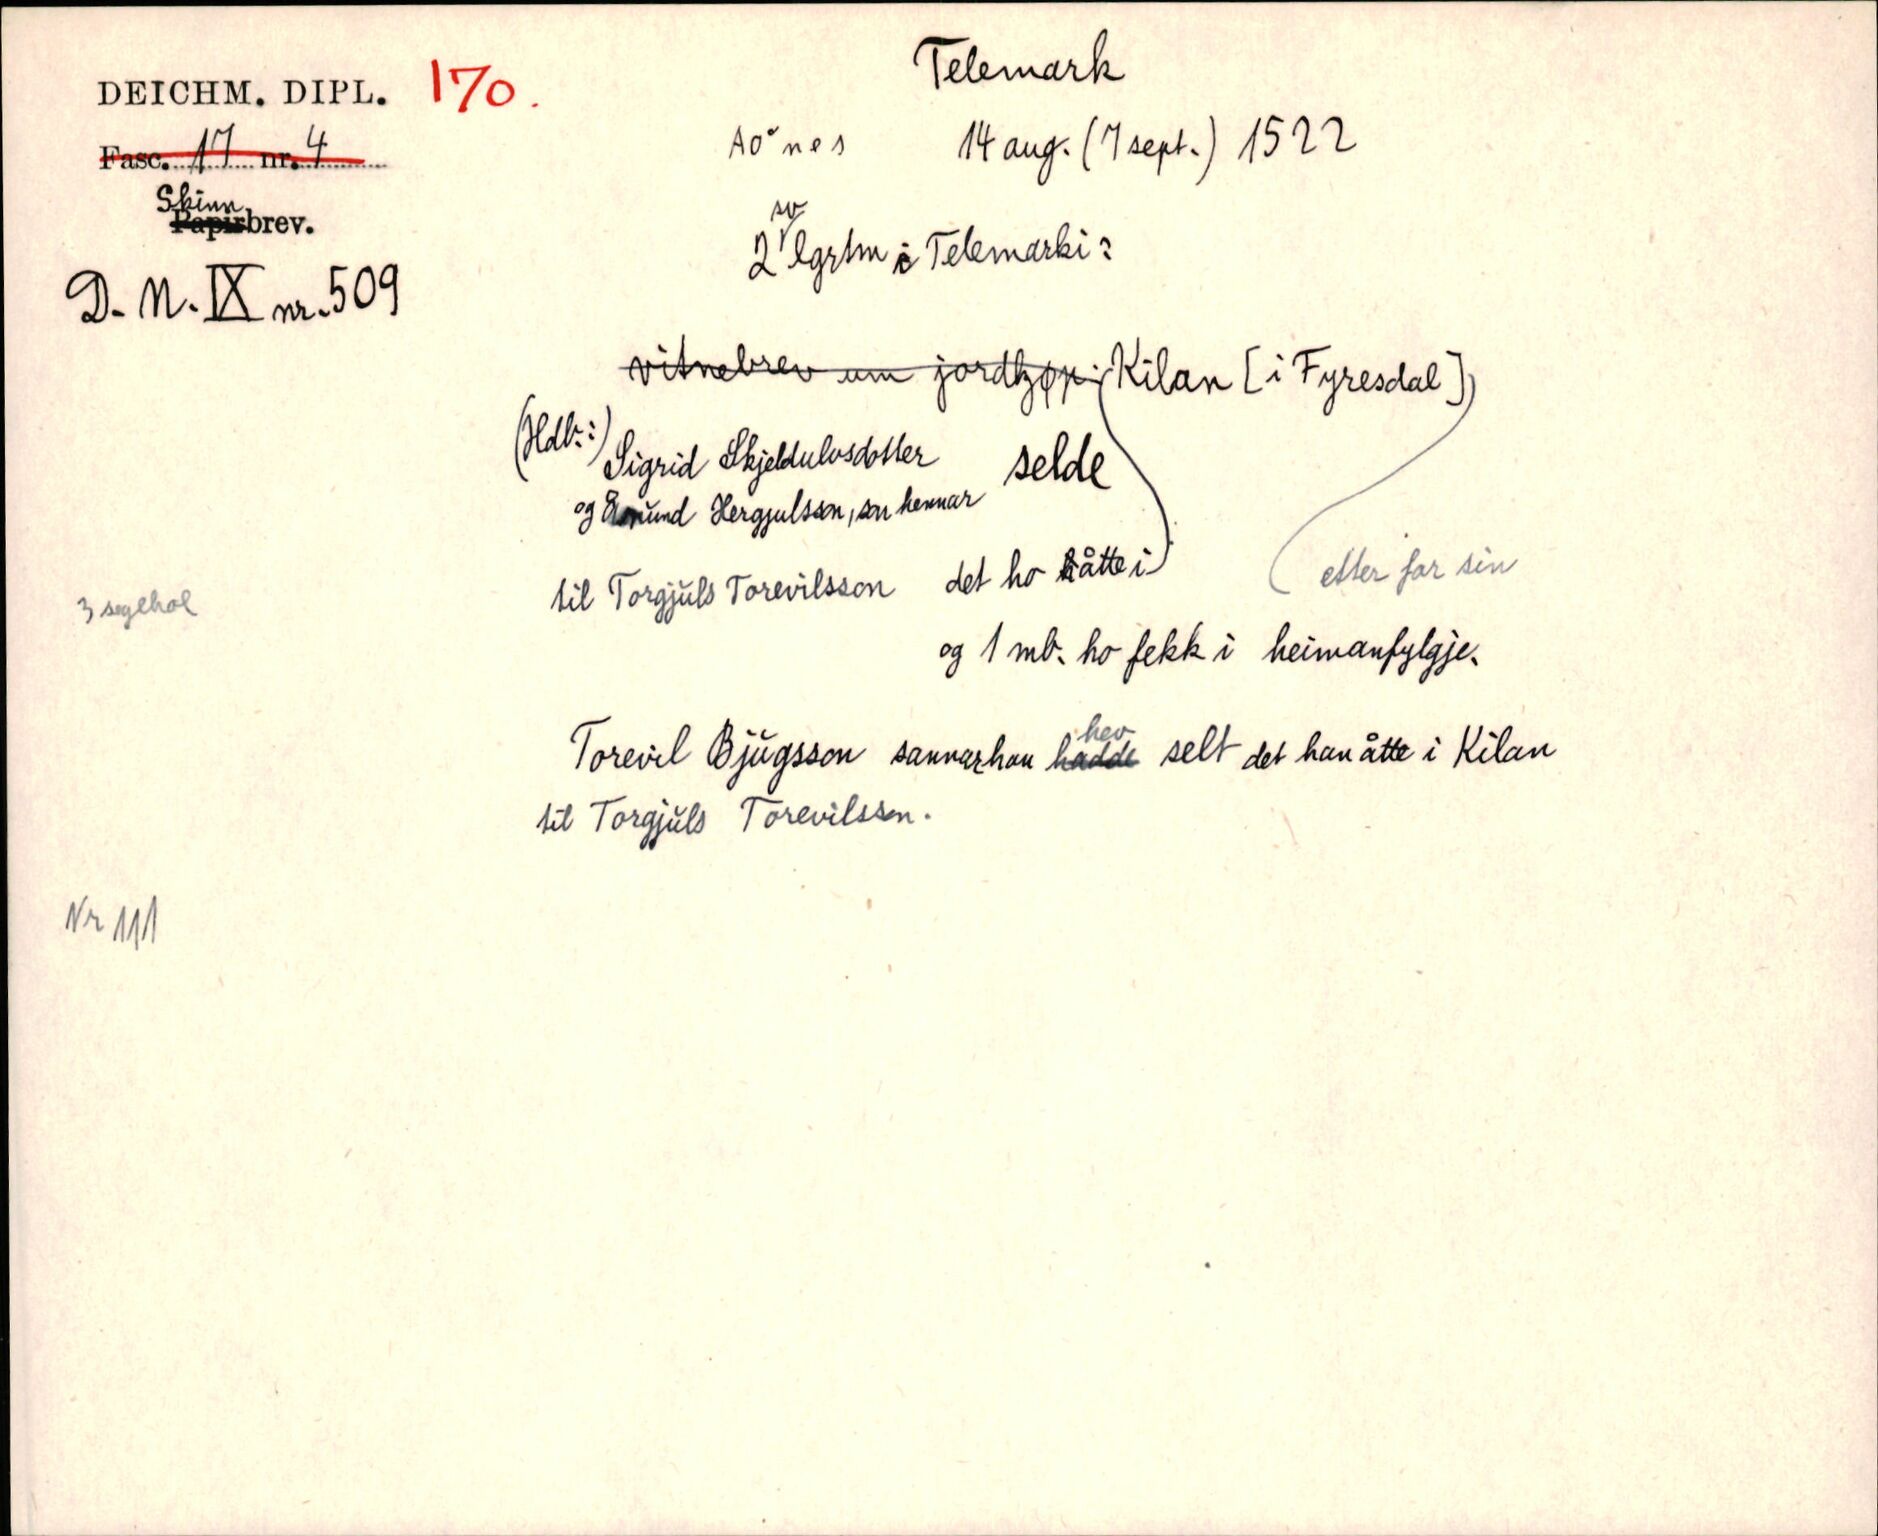 DEICHM. DIPL. 170.
Telemark
Fasc. 17 nr. 4
Aaͦnes 14 aug. (7 sept.) 1522
Skinn
Papirbrev.
sv
2 lgrtm i Telemarki:
D. N. IX nr. 509
vitnebrev um jordkjøp: Kilan [i Fyresdal]
(Hdb.:) Sigrid Skjeldulvsdotter selde
og Hergjulsson, son hennar
til Torgjŭls Torevilsson det ho åtte i etter far sin
3 seglhol
og 1 mb. ho fekk i heimanfylgje.
hev
Torevil Bjŭgsson sannar han hadde selt det han åtte i Kilan
til Torgjŭls Torevilsson.
Nr 111